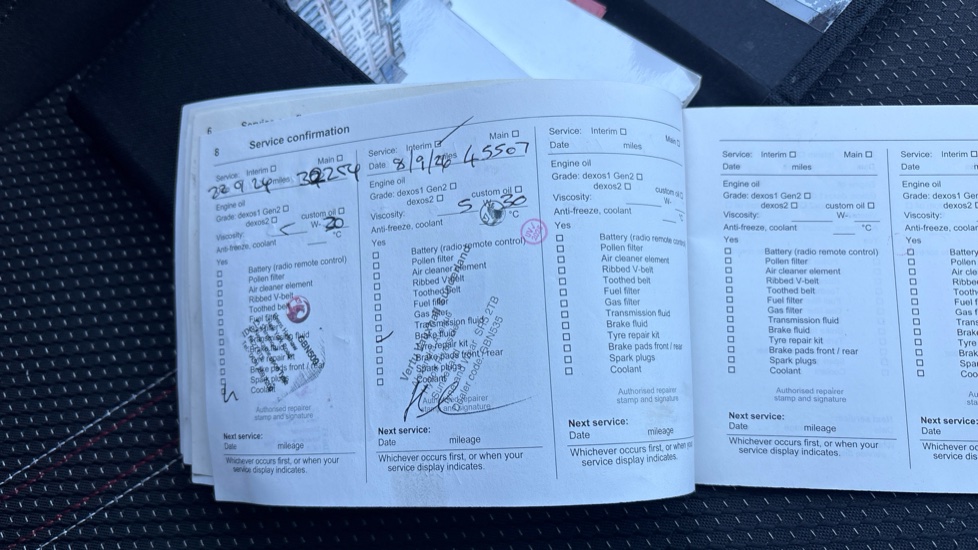 8 Service confirmation
Service: Interim ☐ Main ☐
22 9 24 miles
Engine oil
Grade: dexos1 Gen2 ☐
dexos2 ☐ custom oil ☐
Viscosity: W- 30
Anti-freeze, coolant °C
Yes
☐ Battery (radio remote control)
☐ Pollen filter
☐ Air cleaner element
☐ Ribbed V-belt
☐ Toothed belt
☐ Fuel filter
☐
☐
☐ fluid
☐ Brake fluid
☐ Tyre repair kit
☐ Brake pads front / rear
☐ Spark plugs
☐ Coolant
Authorised repairer
stamp and signature
Next service:
Date mileage
Whichever occurs first, or when your
service display indicates.
Service: Interim ☐ Main ☐
Date 8/9/ miles 45507
Engine oil
Grade: dexos1 Gen2 ☐
dexos2 ☐ custom oil ☐
Viscosity: 5 W- 30
Anti-freeze, coolant °C
Yes
☐ Battery (radio remote control)
☐ Pollen filter
☐ Air cleaner element
☐ Ribbed V-belt
☐ Toothed belt
☐ Fuel filter
☐ Gas filter
☐ Transmission fluid
☐ Brake fluid
☐ Tyre repair kit
☐ Brake pads front / rear
☐ Spark plugs
☐ Coolant
SR5 2TB
Authorised repairer
stamp and signature
Next service:
Date mileage
Whichever occurs first, or when your
service display indicates.
Service: Interim ☐ Main ☐
Date miles
Engine oil
Grade: dexos1 Gen2 ☐
dexos2 ☐ custom oil ☐
Viscosity: W-
Anti-freeze, coolant °C
Yes
☐ Battery (radio remote control)
☐ Pollen filter
☐ Air cleaner element
☐ Ribbed V-belt
☐ Toothed belt
☐ Fuel filter
☐ Gas filter
☐ Transmission fluid
☐ Brake fluid
☐ Tyre repair kit
☐ Brake pads front / rear
☐ Spark plugs
☐ Coolant
Authorised repairer
stamp and signature
Next service:
Date mileage
Whichever occurs first, or when your
service display indicates.
Service: Interim ☐ Main ☐
Date miles
Engine oil
Grade: dexos1 Gen2 ☐
dexos2 ☐ custom oil ☐
Viscosity: W-
Anti-freeze, coolant °C
Yes
☐ Battery (radio remote control)
☐ Pollen filter
☐ Air cleaner element
☐ Ribbed V-belt
☐ Toothed belt
☐ Fuel filter
☐ Gas filter
☐ Transmission fluid
☐ Brake fluid
☐ Tyre repair kit
☐ Brake pads front / rear
☐ Spark plugs
☐ Coolant
Authorised repairer
stamp and signature
Next service:
Date mileage
Whichever occurs first, or when your
service display indicates.
Service: Interim ☐
Date
Engine oil
Grade: dexos1
Viscosity:
Anti-freeze, coolant
Yes
☐ Battery
☐ Pollen
☐ Air
☐ Ribbed
☐ Tooth
☐ Fuel f
☐ Gas f
☐ Trans
☐ Brake
☐ Tyre
☐ Brak
☐ Spa
☐ Coo
Au
st
Next service:
Date
Whichever occurs
service display